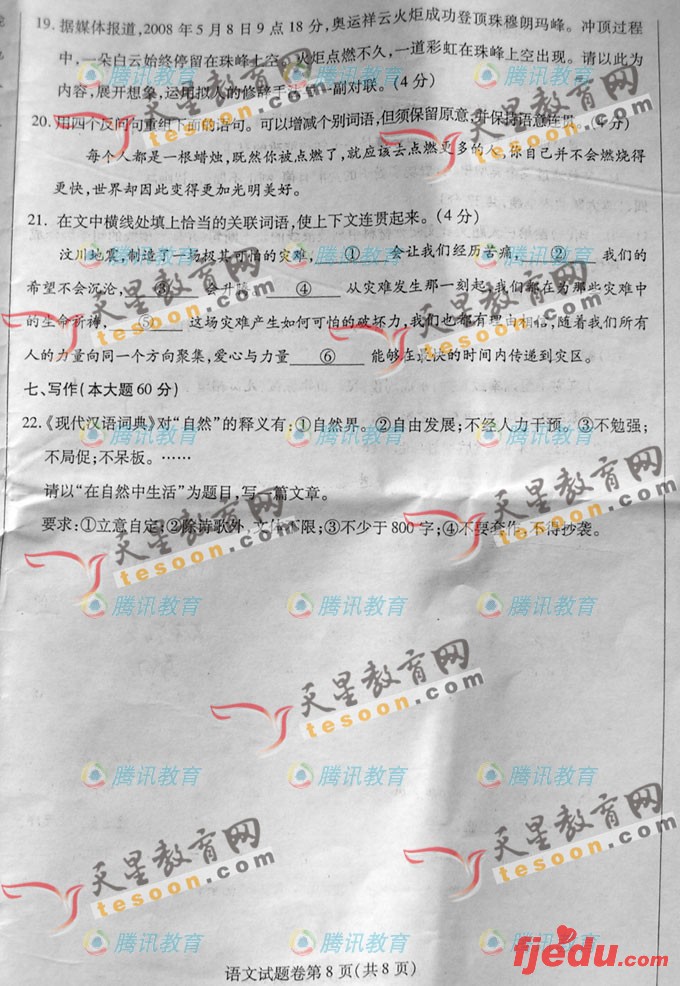 19. 据媒体报道,2008 年 5 月 8 日 9 点 18 分,奥运祥云火炬成功登顶珠穆朗玛峰。冲顶过程
中,一朵白云始终停留在珠峰上空。火炬点燃不久,一道彩虹在珠峰上空出现。请以此为
内容,展开想象,运用拟人的修辞手法 一副对联。(4 分)
20. 用四个反问句重组下面的语句。可以增减个别词语,但须保留原意,并保持语意连贯。(4 分)
每个人都是一根蜡烛,既然你被点燃了,就应该去点燃更多的人,你自己并不会燃烧得
更快,世界却因此变得更加光明美好。
21. 在文中横线处填上恰当的关联词语,使上下文连贯起来。(4 分)
汶川地震,制造了一场极其可怕的灾难, ① 会让我们经历苦痛, ② 我们的
希望不会沉沦, ③ 会升腾。 ④ 从灾难发生那一刻起,我们都在为那些灾难中
的生命祈祷, ⑤ 这场灾难产生如何可怕的破坏力,我们也都有理由相信,随着我们所有
人的力量向同一个方向聚集,爱心与力量 ⑥ 能够在最快的时间内传递到灾区。
七、写作(本大题 60 分)
22.《现代汉语词典》对“自然”的释义有:①自然界。②自由发展;不经人力干预。③不勉强;
不局促;不呆板。……
请以“在自然中生活”为题目,写一篇文章。
要求:①立意自定;②除诗歌外,文体不限;③不少于 800 字;④不要套作,不得抄袭。
语文试题卷第 8 页(共 8 页)
天星教育网
tesoon.com
腾讯教育
fjedu.com